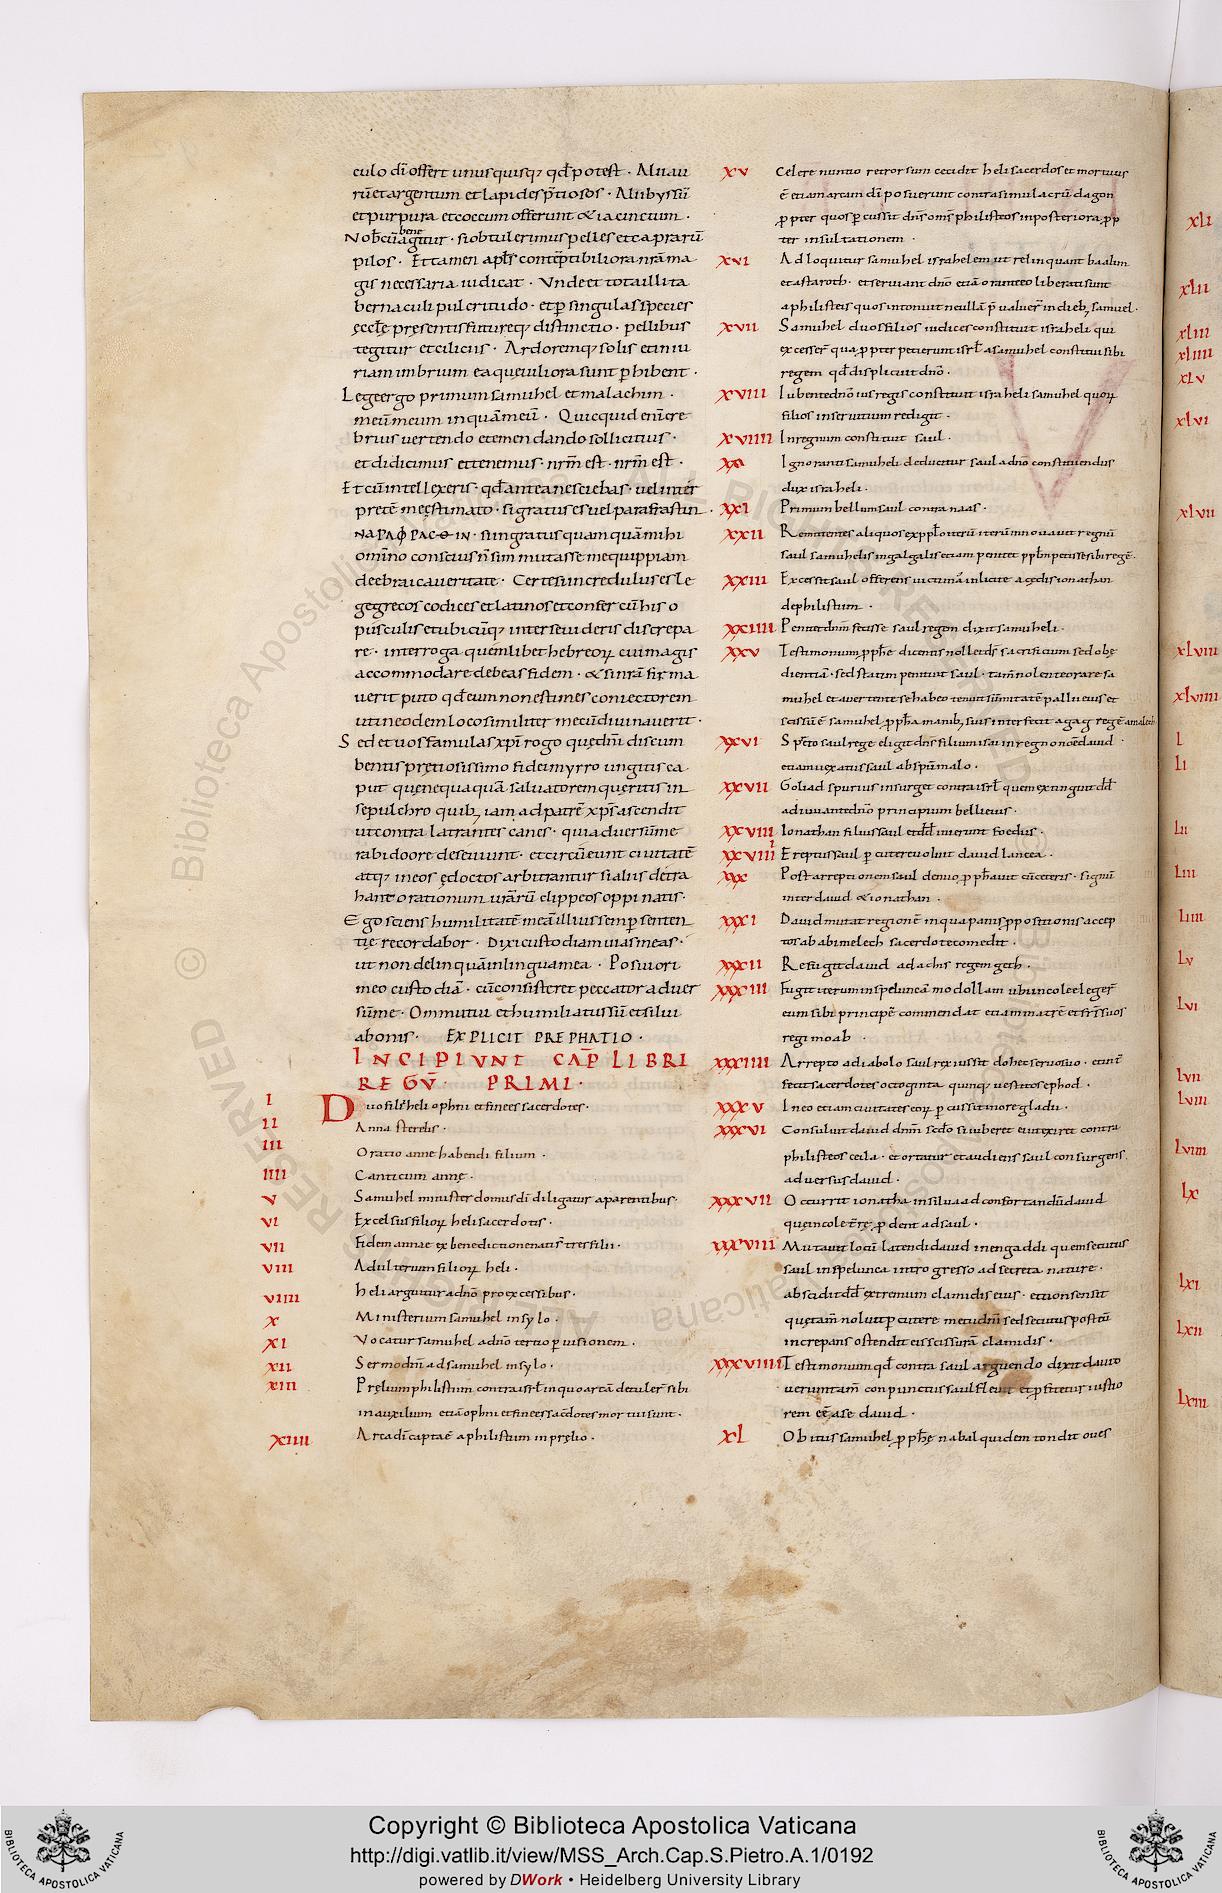 culo di offert unusquisq; qd potest · Alii au
rū et argentum et lapides p̄tiosos · Alii byssū
et purpura et coccum offerunt & iacinctum ·
Nob̄cū bene agitur · si obtulerimus pelles et caprarū
pilos · Et tamen apl̄s contēptibiliora nr̄a ma
gis necessaria iudicat · Unde et tota illi ta
bernaculi pulcritudo · et p singulas species
ęccl̄ę pręsentis futureq; distinctio · pellibus
tegitur et ciliciis · Ardoremq; solis et iniu
riam imbrium ea quę uiliora sunt phibent ·
Lege ergo primum samuhel et malachim ·
meū meum inquā meū · Quicquid enī cre
brius uertendo et emendando sollicitius ·
et didicimus et tenemus · nr̄m est · nr̄m est ·
Et cū intellexeris · qd antea nesciebas · uel inter
pretē me ęstimato · si gratus es uel parafrastin ·
ΝΑΡΑΦΡΑϹΘΙΝ · si ingratus quam quā mihi
omīno conscius n̄ sim mutasse me quippiam
de ebraica ueritate · Certe si incredulus es le
ge gręcos codices et latinos et confer cū his o
pusculis et ubicūq; inter se uideris discrepa
re · interroga quemlibet hebreoꝝ cui magis
accommodare debeas fidem · & si nr̄a firma
uerit puto qd eum non estimes coniectorem
ut in eodem loco similiter mecū diuinauerit ·
Sed et uos famulas xp̄i rogo quę dn̄i discum
bentis pretiosissimo fidei myrro ungitis ca
put quę nequaquā saluatorem queritis in
sepulchro quib; iam ad patrē xp̄s ascendit
ut contra latrantes canes · qui aduersū me
rabido ore deseuiunt · et circūeunt ciuitatē
atq; in eo se doctos arbitrantur si aliis detra
hant orationum ur̄arū clippeos opponatis ·
Ego sciens humilitatē meā illius semp senten
tię recordabor · Dixi custodiam uias meas ·
ut non delinquā in lingua mea · Posui ori
meo custodiā · cū consisteret peccator aduer
sū me · Ommutui et humiliatus sū et silui
a bonis · EXPLICIT PREPHATIO ·
INCIPIUNT CAP̄ LIBRI
REGŪ · PRIMI ·
I Duo filii heli ophni et finees sacerdotes ·
II Anna sterelis ·
III Oratio anne habendi filium ·
IIII Canticum annę ·
V Samuhel minister domus dī diligatur a parentibus ·
VI Excelsus filioꝝ heli sacerdotis ·
VII Fidem annae ex benedictione nati s̄ tres filii ·
VIII Adulterium filioꝝ heli ·
VIIII heli arguitur a dn̄o pro excessibus ·
X Ministerium samuhel in sylo ·
XI Vocatur samuhel a dn̄o tertio p uisionem ·
XII Sermo dn̄i ad samuhel in sylo ·
XIII Prelium philistim contra isrl̄ in quo arcā detuler̄ sibi
in auxilium etiā ophni et finees sacdotes mortui sunt ·
XIIII Arca dī capta ē a philistim in prelio ·
XV Celere nuntio retrorsum cecidit heli sacerdos et mortuus
ē etiam arcam dī posuerunt contra simulacrū dagon
ppter quos pcussit dn̄s om̄s philisteos in posteriora pp
ter insultationem ·
XVI Adloquitur samuhel israhelem ut relinquant baalim
et astaroth · et seruiant dn̄o etiā orante eo liberati sunt
a philisteis quos intonuit nec ullā p̄ualuer̄ in dieb; samuel ·
XVII Samuhel duos filios iudices constituit israheli qui
excesser̄ qua ppter petierunt isrl̄ a samuhel constitui sibi
regem qd displicuit dn̄o ·
XVIII Iubente dn̄o ius regis constituit israheli samuhel quoꝝ
filios in seruitium redigit ·
XVIIII In regnum constituit saul ·
XX Ignoranti samuheli deducitur saul a dn̄o constituendus
dux israheli ·
XXI Primum bellum saul contra naas ·
XXII Remitentes aliquos ex ppl̄o iterū iterū innouauit regnū
saul samuhel is in galgalis etiam penitet ppl̄m petisse sibi regē ·
XXIII Excessit saul offerens uictimā inlicite a cędis ionathan
de philistim ·
XXIIII Penitet dn̄m fecisse saul regem dixit samuheli ·
XXV Testimonium pphę dicentis nolle ds̄ sacrificium sed obę
dientiā · sed statim penituit saul · tam̄ nolente orare sa
muhel et auertente se habeo tenuit sūmitatē pallii eius et
scissū ē samuhel ppha manib; suis interfecit agag regē amalech
XXVI Spreto saul rege eligit dn̄s filium isai in regno nōe dauid
etiam uexatus saul ab spū malo ·
XXVII Goliad spurius insurget contra isrl̄ quem extinguit dd̄
adiuuante dn̄o principium belli eius ·
XXVIII Ionathan filius saul et dd̄ inierunt foedus ·
XXVIIII Ereptus saul pcutere uoluit dauid lancea ·
XXX Post arreptionem saul denuo pphauit cū ceteris · signū
inter dauid & ionathan ·
XXXI Dauid mutat regionē in qua panis ppositionis accep
tos ab abimelech sacerdote comedit ·
XXXII Refugit dauid ad achis regem geth ·
XXXIII Fugit iterum in speluncā modollam ubi incole elegęr̄
eum sibi principē commendat etiam matrē et fr̄s suos
regi moab ·
XXXIIII Arrepto a diabolo saul rex iussit dohec seruo suo · etiī ē
fecit sacerdotes octoginta quinq; uestitos ephod ·
XXXV In eo etiam ciuitates eoꝝ pcussit in ore gladii ·
XXXVI Consuluit dauid dn̄m sc̄do si iuberet ei ut exiret contra
philisteos ceila · et ortatur et audiens saul consurgens
aduersus dauid ·
XXXVII Occurrit ionatha in silua ad confortandū dauid
quę incole terrę pdent ad saul ·
XXXVIII Mutauit locū latendi dauid in engaddi quem secutus
saul in spelunca introgresso ad secreta nature ·
abscidit dd̄ extremum clamidis eius · et non sensit
quę tam̄ noluit pcutere metu dn̄i sed secutus post eū
increpans ostendit ei scissurā clamidis ·
XXXVIIII Testimonium qd contra saul arguendo dixit dauid
ueruntam̄ conpunctus saul fleuit et pfitetur iustio
rem eē a se dauid ·
XL Obitus samuhel pphę nabal quidem tondit oues
XLI
XLII
XLIII
XLIIII
XLV
XLVI
XLVII
XLVIII
XLVIIII
L
LI
LII
LIII
LIIII
LV
LVI
LVII
LVIII
LVIIII
LX
LXI
LXII
LXIII
Copyright © Biblioteca Apostolica Vaticana
http://digi.vatlib.it/view/MSS_Arch.Cap.S.Pietro.A.1/0192
powered by DWork • Heidelberg University Library